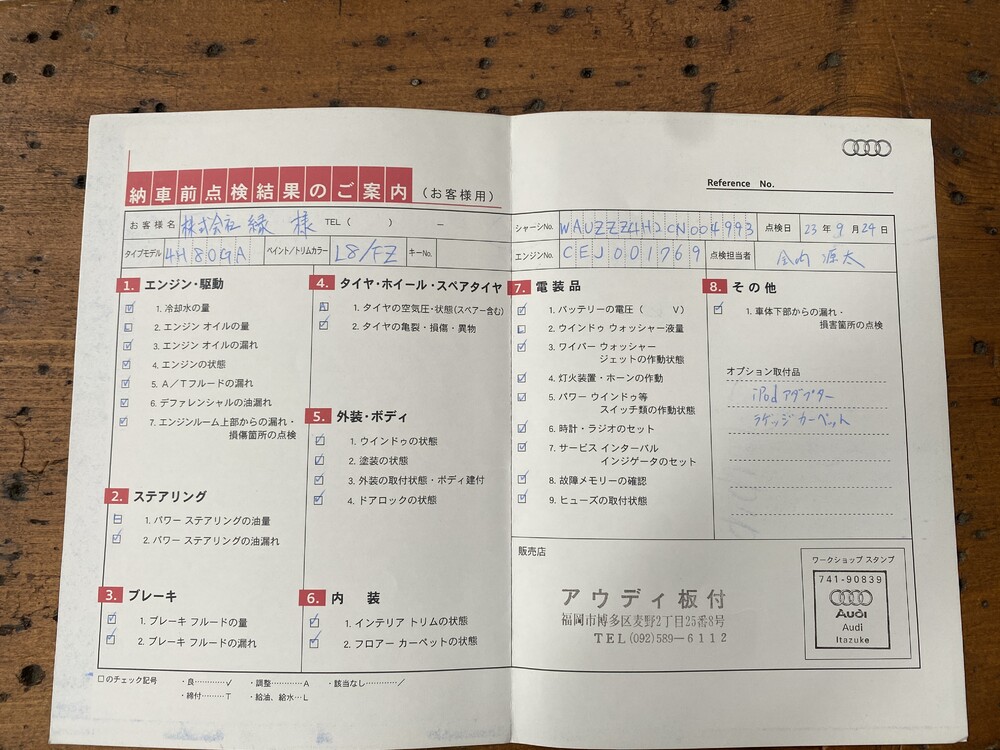 納車前点検結果のご案内 (お客様用)
お客様名 株式会社 緑 様 TEL ( ) –
タイプモデル 4H80GA ペイント/トリムカラー L8/FZ キーNo.
1. エンジン・駆動
1. 冷却水の量
2. エンジン オイルの量
3. エンジン オイルの漏れ
4. エンジンの状態
5. A/Tフルードの漏れ
6. デファレンシャルの油漏れ
7. エンジンルーム上部からの漏れ・
損傷箇所の点検
2. ステアリング
1. パワー ステアリングの油量
2. パワー ステアリングの油漏れ
3. ブレーキ
1. ブレーキ フルードの量
2. ブレーキ フルードの漏れ
4. タイヤ・ホイール・スペアタイヤ
1. タイヤの空気圧・状態(スペアー含む)
2. タイヤの亀裂・損傷・異物
5. 外装・ボディ
1. ウインドゥの状態
2. 塗装の状態
3. 外装の取付状態・ボディ建付
4. ドアロックの状態
6. 内 装
1. インテリア トリムの状態
2. フロアー カーペットの状態
□のチェック記号 ・良…………√ ・調整…………A ・該当なし…………/
・締付………T ・給油、給水…L
Audi
Reference No.
シャーシNo. WAUZZZ4H2CN004993 点検日 23年9月24日
エンジンNo. CEJ001769 点検担当者
7. 電装品
1. バッテリーの電圧( V)
2. ウインドゥ ウォッシャー液量
3. ワイパー ウォッシャー
ジェットの作動状態
4. 灯火装置・ホーンの作動
5. パワー ウインドゥ等
スイッチ類の作動状態
6. 時計・ラジオのセット
7. サービス インターバル
インジゲータのセット
8. 故障メモリーの確認
9. ヒューズの取付状態
8. その他
1. 車体下部からの漏れ・
損害箇所の点検
オプション取付品
iPodアダプター
ラゲッジカーペット
販売店
アウディ板付
福岡市博多区麦野2丁目25番8号
TEL(092)589―6112
ワークショップ スタンプ
741-90839
Audi
Audi
Itazuke